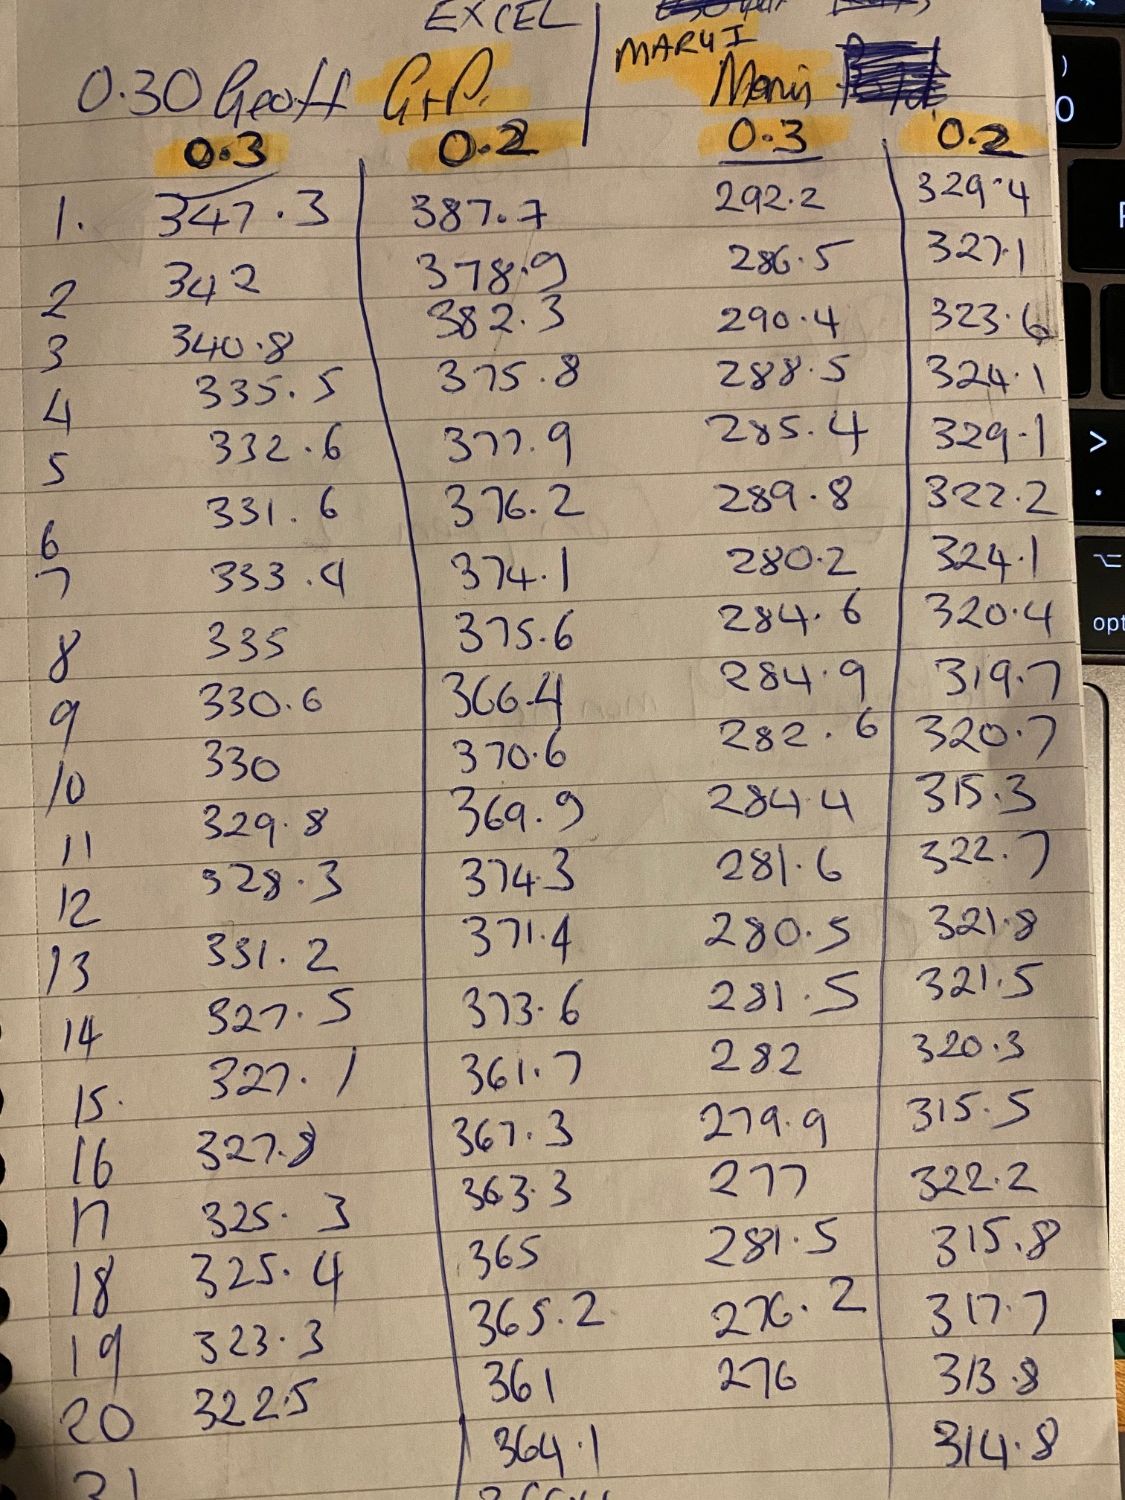 EXCEL
MARUI
0.30 Geoff G+P.
0.3 0.2 0.3 0.2
1. 347.3 387.7 292.2 329.4
2 342 378.9 286.5 327.1
3 340.8 382.3 290.4 323.6
4 335.5 375.8 288.5 324.1
5 332.6 377.9 285.4 329.1
6 331.6 376.2 289.8 322.2
7 333.4 374.1 280.2 324.1
8 335 375.6 284.6 320.4
9 330.6 366.4 284.9 319.7
10 330 370.6 282.6 320.7
11 329.8 369.9 284.4 315.3
12 328.3 374.3 281.6 322.7
13 331.2 371.4 280.5 321.8
14 327.5 373.6 281.5 321.5
15. 327.1 361.7 282 320.3
16 327.8 367.3 279.9 315.5
17 325.3 363.3 277 322.2
18 325.4 365 281.5 315.8
19 323.3 365.2 276.2 317.7
20 322.5 361 276 313.8
21 364.1 314.8